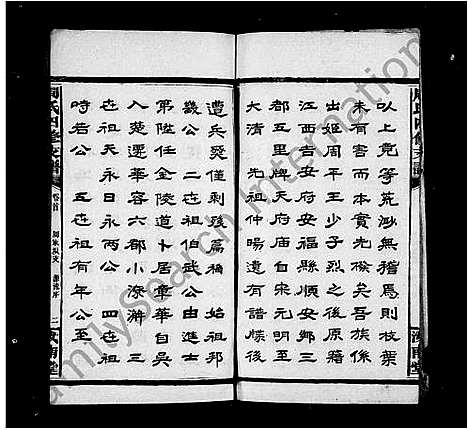 以上堯等荒渺無稽爲則枝葉
未有害而本實先候矣吾族係
出姬周平王少子烈之後原籍
江西吉安府安福縣順安鄉三
都五里牌天府廟自國初
大清　先祖仲暘遺有譜牒後
遭兵燹僅剩殘篇稱　始祖邦
畿公　二世祖伯武公由進士
第陞任金陵道卜居童華自吳
入楚遷華容六郡小潦湖　三
世祖天永日永兩公　四世祖
時若公　五世祖有年公至
周氏四修支譜
卷首
二
汝南堂
FamilySearch International